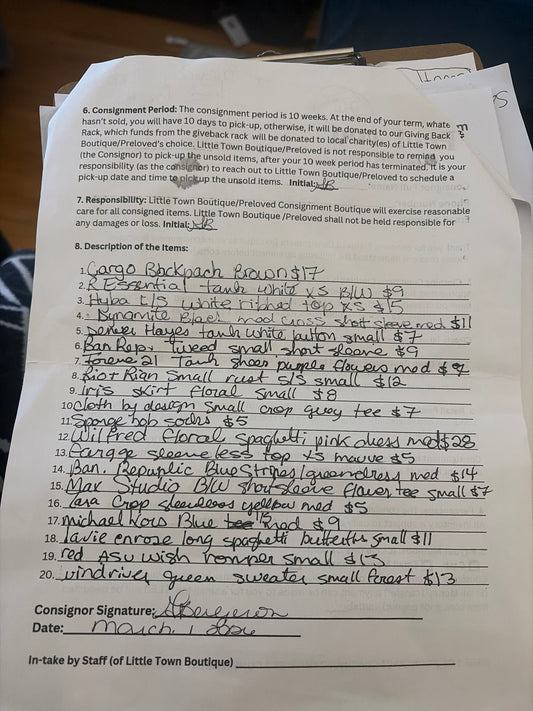 6. Consignment Period: The consignment period is 10 weeks. At the end of your term, whate
hasn't sold, you will have 10 days to pick-up, otherwise, it will be donated to our Giving Back
Rack, which funds from the giveback rack will be donated to local charity(es) of Little Town
Boutique/Preloved's choice. Little Town Boutique/Preloved is not responsible to remind you
(the Consignor) to pick-up the unsold items, after your 10 week period has terminated. It is your
responsibility (as the consignor) to reach out to Little Town Boutique/Preloved to schedule a
pick-up date and time to pick up the unsold items. Initial:
7. Responsibility: Little Town Boutique/Preloved Consignment Boutique will exercise reasonable
care for all consigned items. Little Town Boutique /Preloved shall not be held responsible for
any damages or loss. Initial:
8. Description of the Items:
1. Cargo Backpack Brown $17
2. R Essential tank white XS B/W $9
3. Hyba L/S white ribbed top XS $15
4. Dynamite Black mod cross short sleeve med $11
5. Denver Hayes tank white button small $7
6. Ban Rep. tweed small short sleeve $9
7. Forever 21 Tank sheer purple flowers med $9
8. Riot Rian Small rust S/S small $12
9. Iris skirt floral small $8
10. Cloth by design small crop grey tee $7
11. Sponge bob socks $5
12. Wilfred floral spaghetti pink dress med $28
13. sleeveless top XS mauve $5
14. Ban. Republic Blue Stripes/green dress med $14
15. Max Studio B/W short sleeve flower tee small $7
16. Crop sleeveless yellow med $5
17. Michael Kors Blue med $9
18. lavie enrose long spaghetti butterflies small $11
19. red ASU wish romper small $13
20. windriver green sweater small forest $13
Consignor Signature:
Date: March 1
In-take by Staff (of Little Town Boutique)